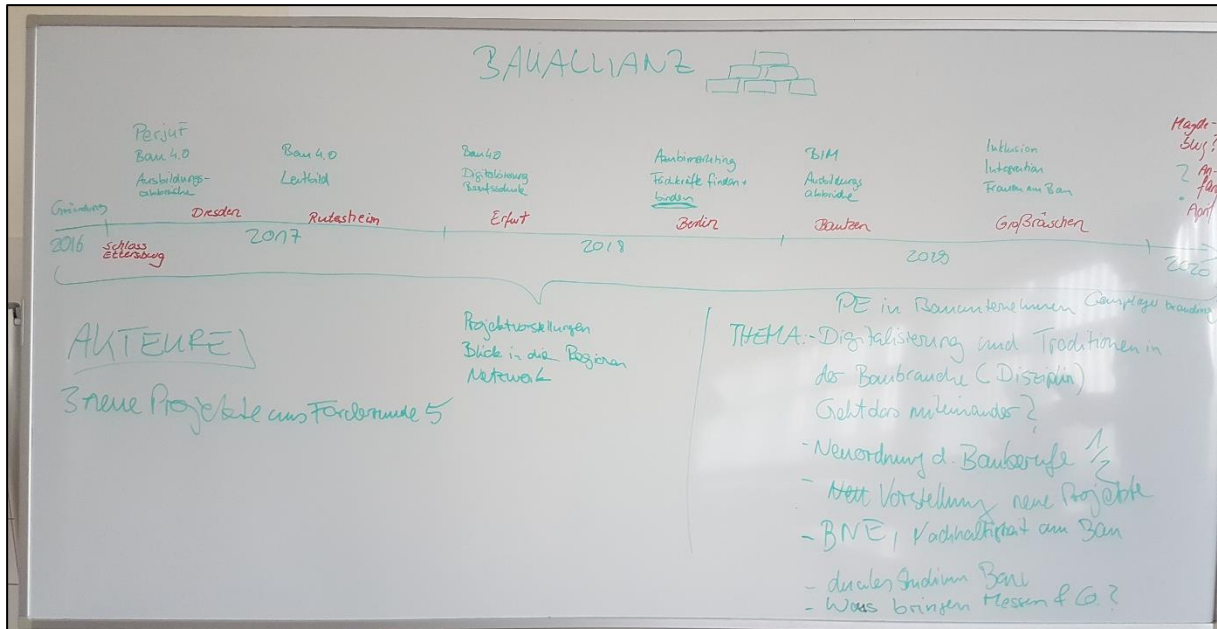 BAUALLIANZ
Perjuf
Bau 4.0
Ausbildungs-
abbrüche
Bau 4.0
Leitbild
Bau 4.0
Digitalisierung
Berufsschule
Azubimarketing
Fachkräfte finden +
binden
BIM
Ausbildungs
abbrüche
Inklusion
Integration
Frauen am Bau
Magde-
burg?
? An-
fang
April
Gründung
Dresden
Rutesheim
Erfurt
Berlin
Bautzen
Großräschen
2016
Schloss
Ettersburg
2017
2018
2019
2020
AKTEURE
3 neue Projekte aus Förderrunde 5
Projektvorstellungen
Blick in die Regionen
Netzwerk
PE in Bauunternehmen Employer branding
THEMA: - Digitalisierung und Traditionen in
der Baubranche (Disziplin)
Geht das miteinander?
- Neuordnung d. Bauberufe 1/2
- Vorstellung neue Projekte
- BNE, Nachhaltigkeit am Bau
- duales Studium Bau
- Was bringen Messen & Co.?